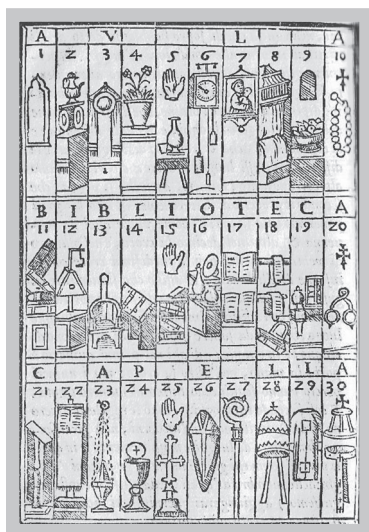 A V L A
1 2 3 4 5 6 7 8 9 10
B I B L I O T E C A
11 12 13 14 15 16 17 18 19 20
C A P E L L A
21 22 23 24 25 26 27 28 29 30